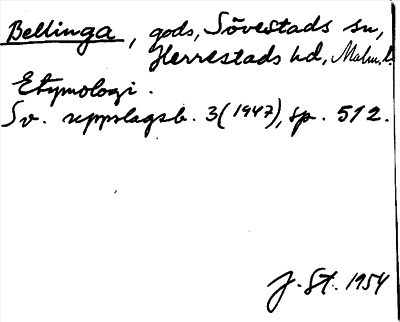 Bellinga, gods, Sövestads sn,
Herrestads hd, Malm. l.
Etymologi.
Sv. uppslagsb. 3(1947), sp. 512.
J. St. 1954